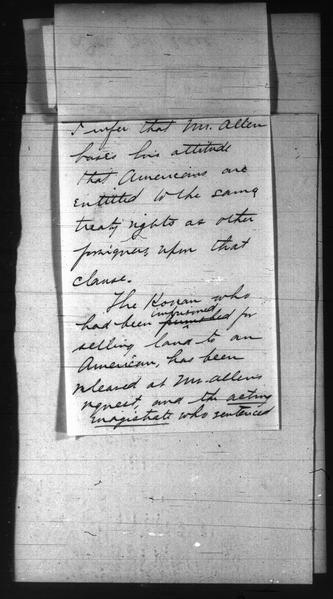 I infer that Mr. Allen
bases his attitude
that Americans are
entitled to the same
treaty rights as other
foreigners upon that
clause.
The Korean who
had been imprisoned punished for
selling land to an
American, has been
released at Mr. Allen's
request, and the acting
Magistrate who sentenced